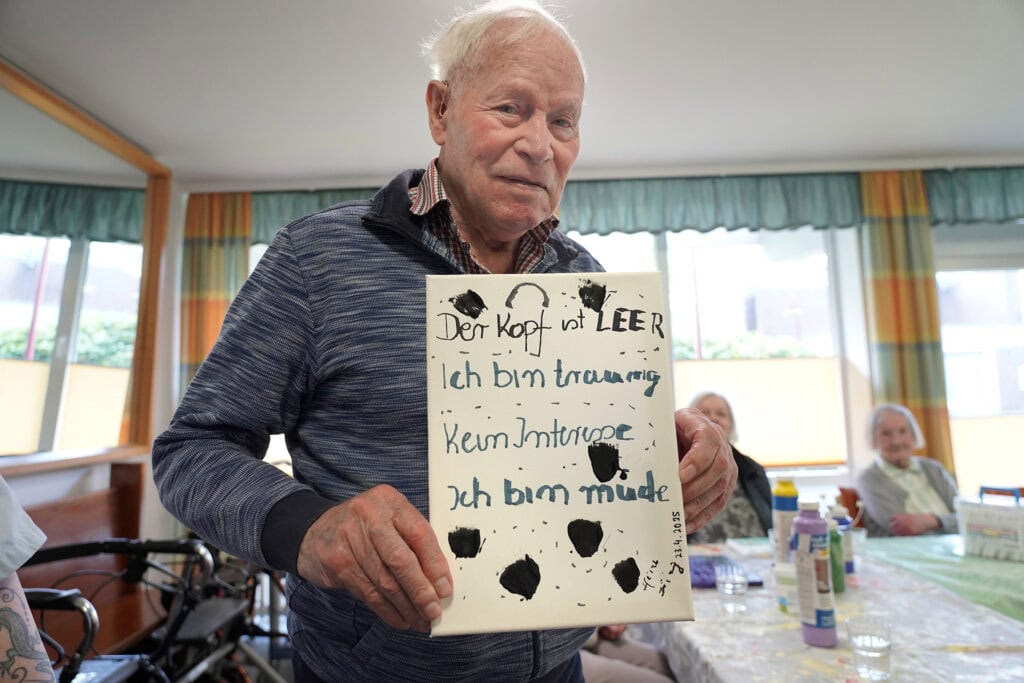 Der Kopf ist LEER
Ich bin traurig
Kein Interesse
Ich bin müde
23.4.2025